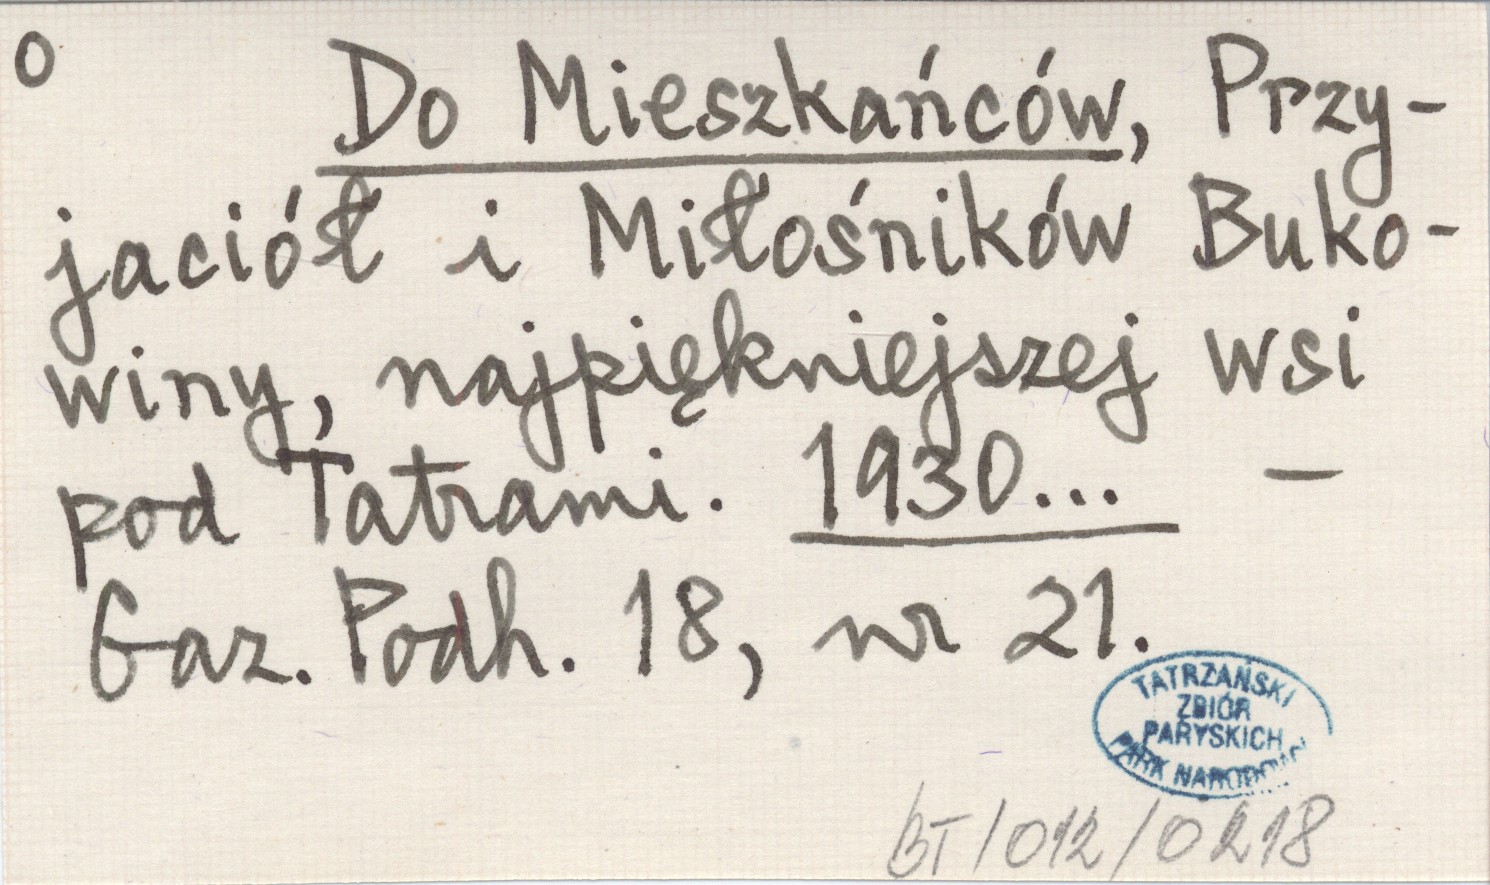 o Do Mieszkańców, Przy-
jaciół i Miłośników Buko-
winy, najpiękniejszej wsi
pod Tatrami. 1930... —
Gaz. Podh. 18, nr 21.
TATRZAŃSKI
ZBIÓR
PARYSKICH
PARK NARODOWY
BT/012/0218